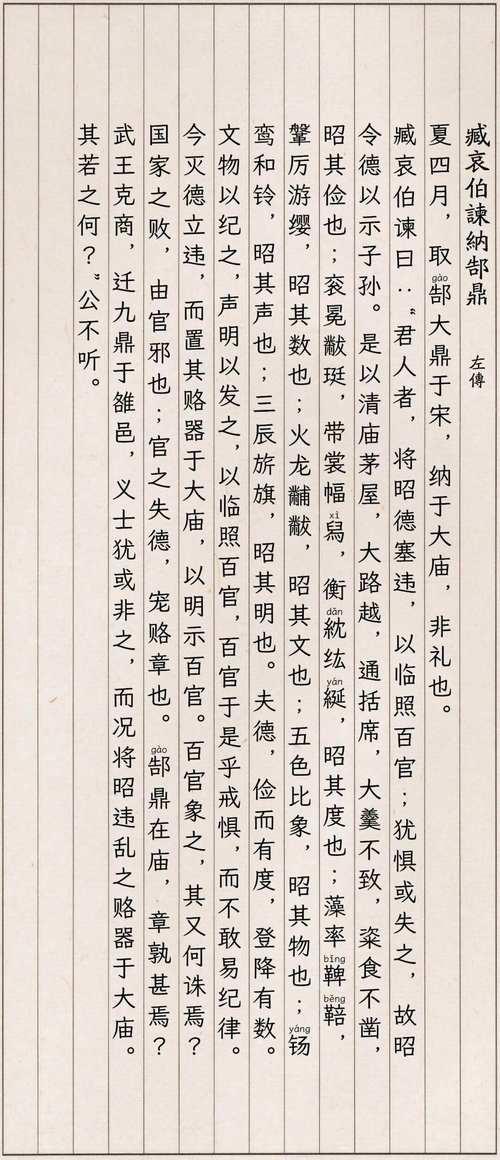 臧哀伯諫納郜鼎 左傳
夏四月，取郜gào大鼎于宋，纳于大庙，非礼也。
臧哀伯谏曰：“君人者，将昭德塞违，以临照百官；犹惧或失之，故昭
令德以示子孙。是以清庙茅屋，大路越，通括席，大羹不致，粢食不凿，
昭其俭也；衮冕黻珽，带裳幅舄xì，衡紞dǎn纮綖yán，昭其度也；藻率鞞bǐng鞛běng，
鞶厉游缨，昭其数也；火龙黼黻，昭其文也；五色比象，昭其物也；钖yáng
鸾和铃，昭其声也；三辰旂旗，昭其明也。夫德，俭而有度，登降有数。
文物以纪之，声明以发之，以临照百官，百官于是乎戒惧，而不敢易纪律。
今灭德立违，而置其赂器于大庙，以明示百官。百官象之，其又何诛焉？
国家之败，由官邪也；官之失德，宠赂章也。郜gào鼎在庙，章孰甚焉？
武王克商，迁九鼎于雒邑，义士犹或非之，而况将昭违乱之赂器于大庙。
其若之何？”公不听。